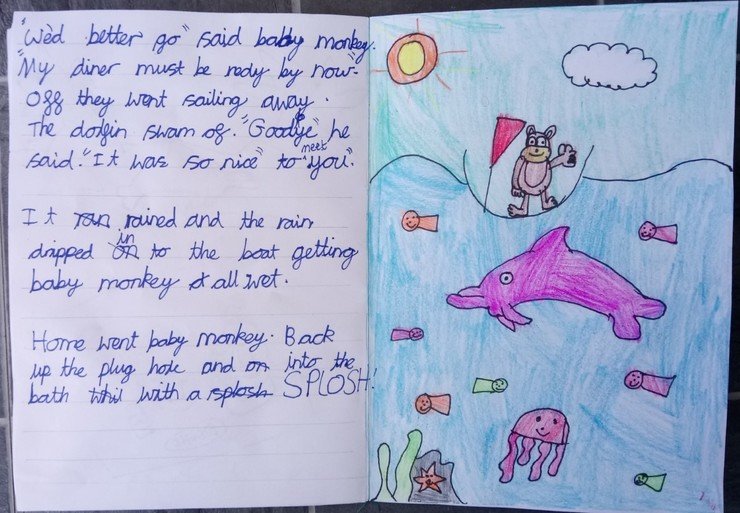 "We'd better go" said baby monkey.
"My diner must be redy by now"
Off they went sailing away.
The dolfin swam of. "Goodbye" he
said. "It was so nice" to meet you".
It ran rained and the rain
dripped on in to the boat getting
baby monkey all wet.
Home went baby monkey. Back
up the plug hole and on into the
bath with a splosh SPLOSH!